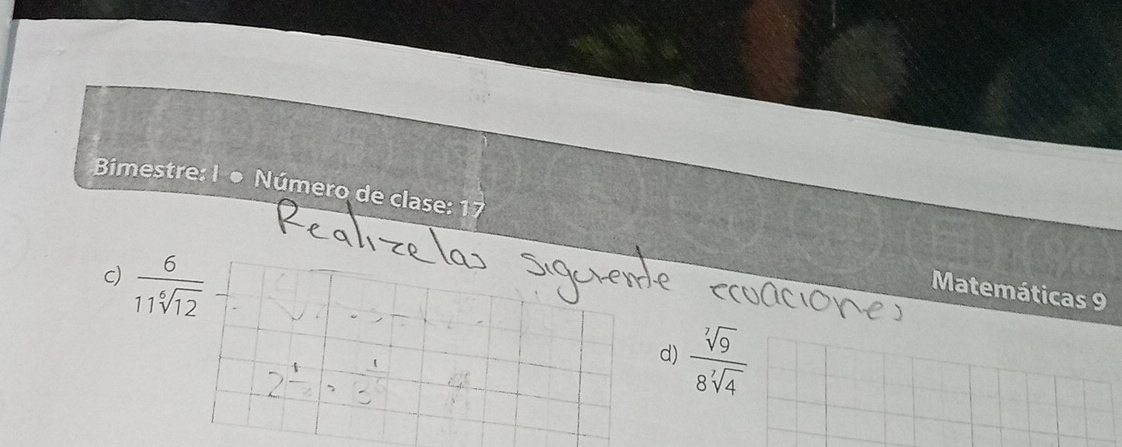 Bimestre: I • Número de clase: 17
Realize las siguiente ecuaciones
Matemáticas 9
c) 6 / 11⁶√12
d) ⁷√9 / 8⁷√4